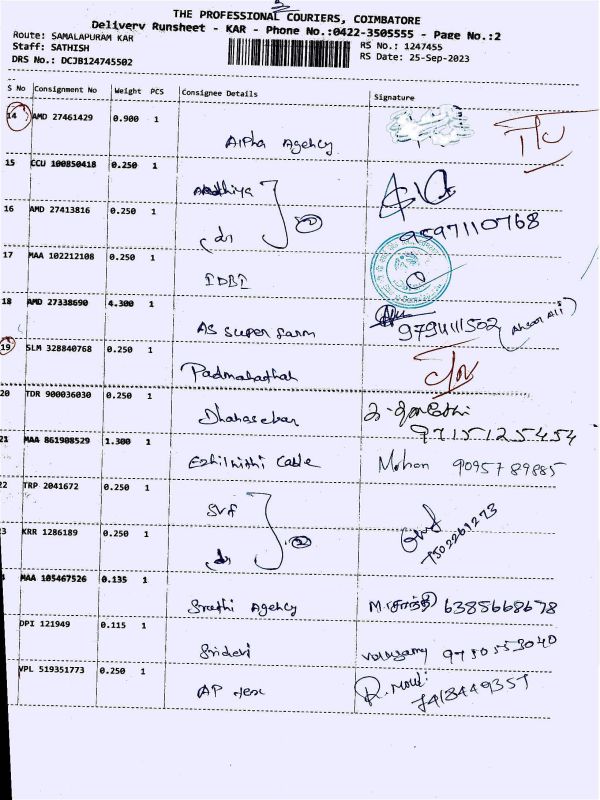 THE PROFESSIONAL COURIERS, COIMBATORE
Delivery Runsheet - KAR - Phone No.:0422-3505555 - Page No.:2
Route: SAMALAPURAM KAR RS No.: 1247455
Staff: SATHISH RS Date: 25-Sep-2023
DRS No.: DCJB124745502
S No Consignment No Weight PCS Consignee Details Signature
14 AMD 27461429 0.900 1
Alpha Agency
15 CCU 100850418 0.250 1
16 AMD 27413816 0.250 1
9597110768
17 MAA 102212108 0.250 1
IDBI
18 AMD 27338690 4.300 1
AS Super Farm 9794111502
19 SLM 328840768 0.250 1
20 TDR 900036030 0.250 1
Dhanasekar 9715125454
21 MAA 861908529 1.300 1
Ezhilnithi Cable Mohan 9095789885
22 TRP 2041672 0.250 1
SVF
KRR 1286189 0.250 1
7502261273
MAA 105467526 0.135 1
Sruthi Agency 6385668678
DPI 121949 0.115 1
Sridevi 9750553040
VPL 519351773 0.250 1
AP Tex 7418449357